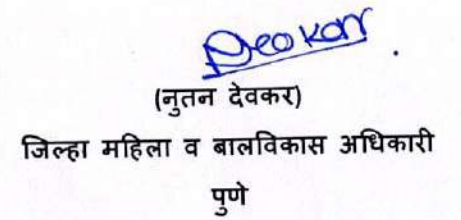 Deokar
(नुतन देवकर)
जिल्हा महिला व बालविकास अधिकारी
पुणे